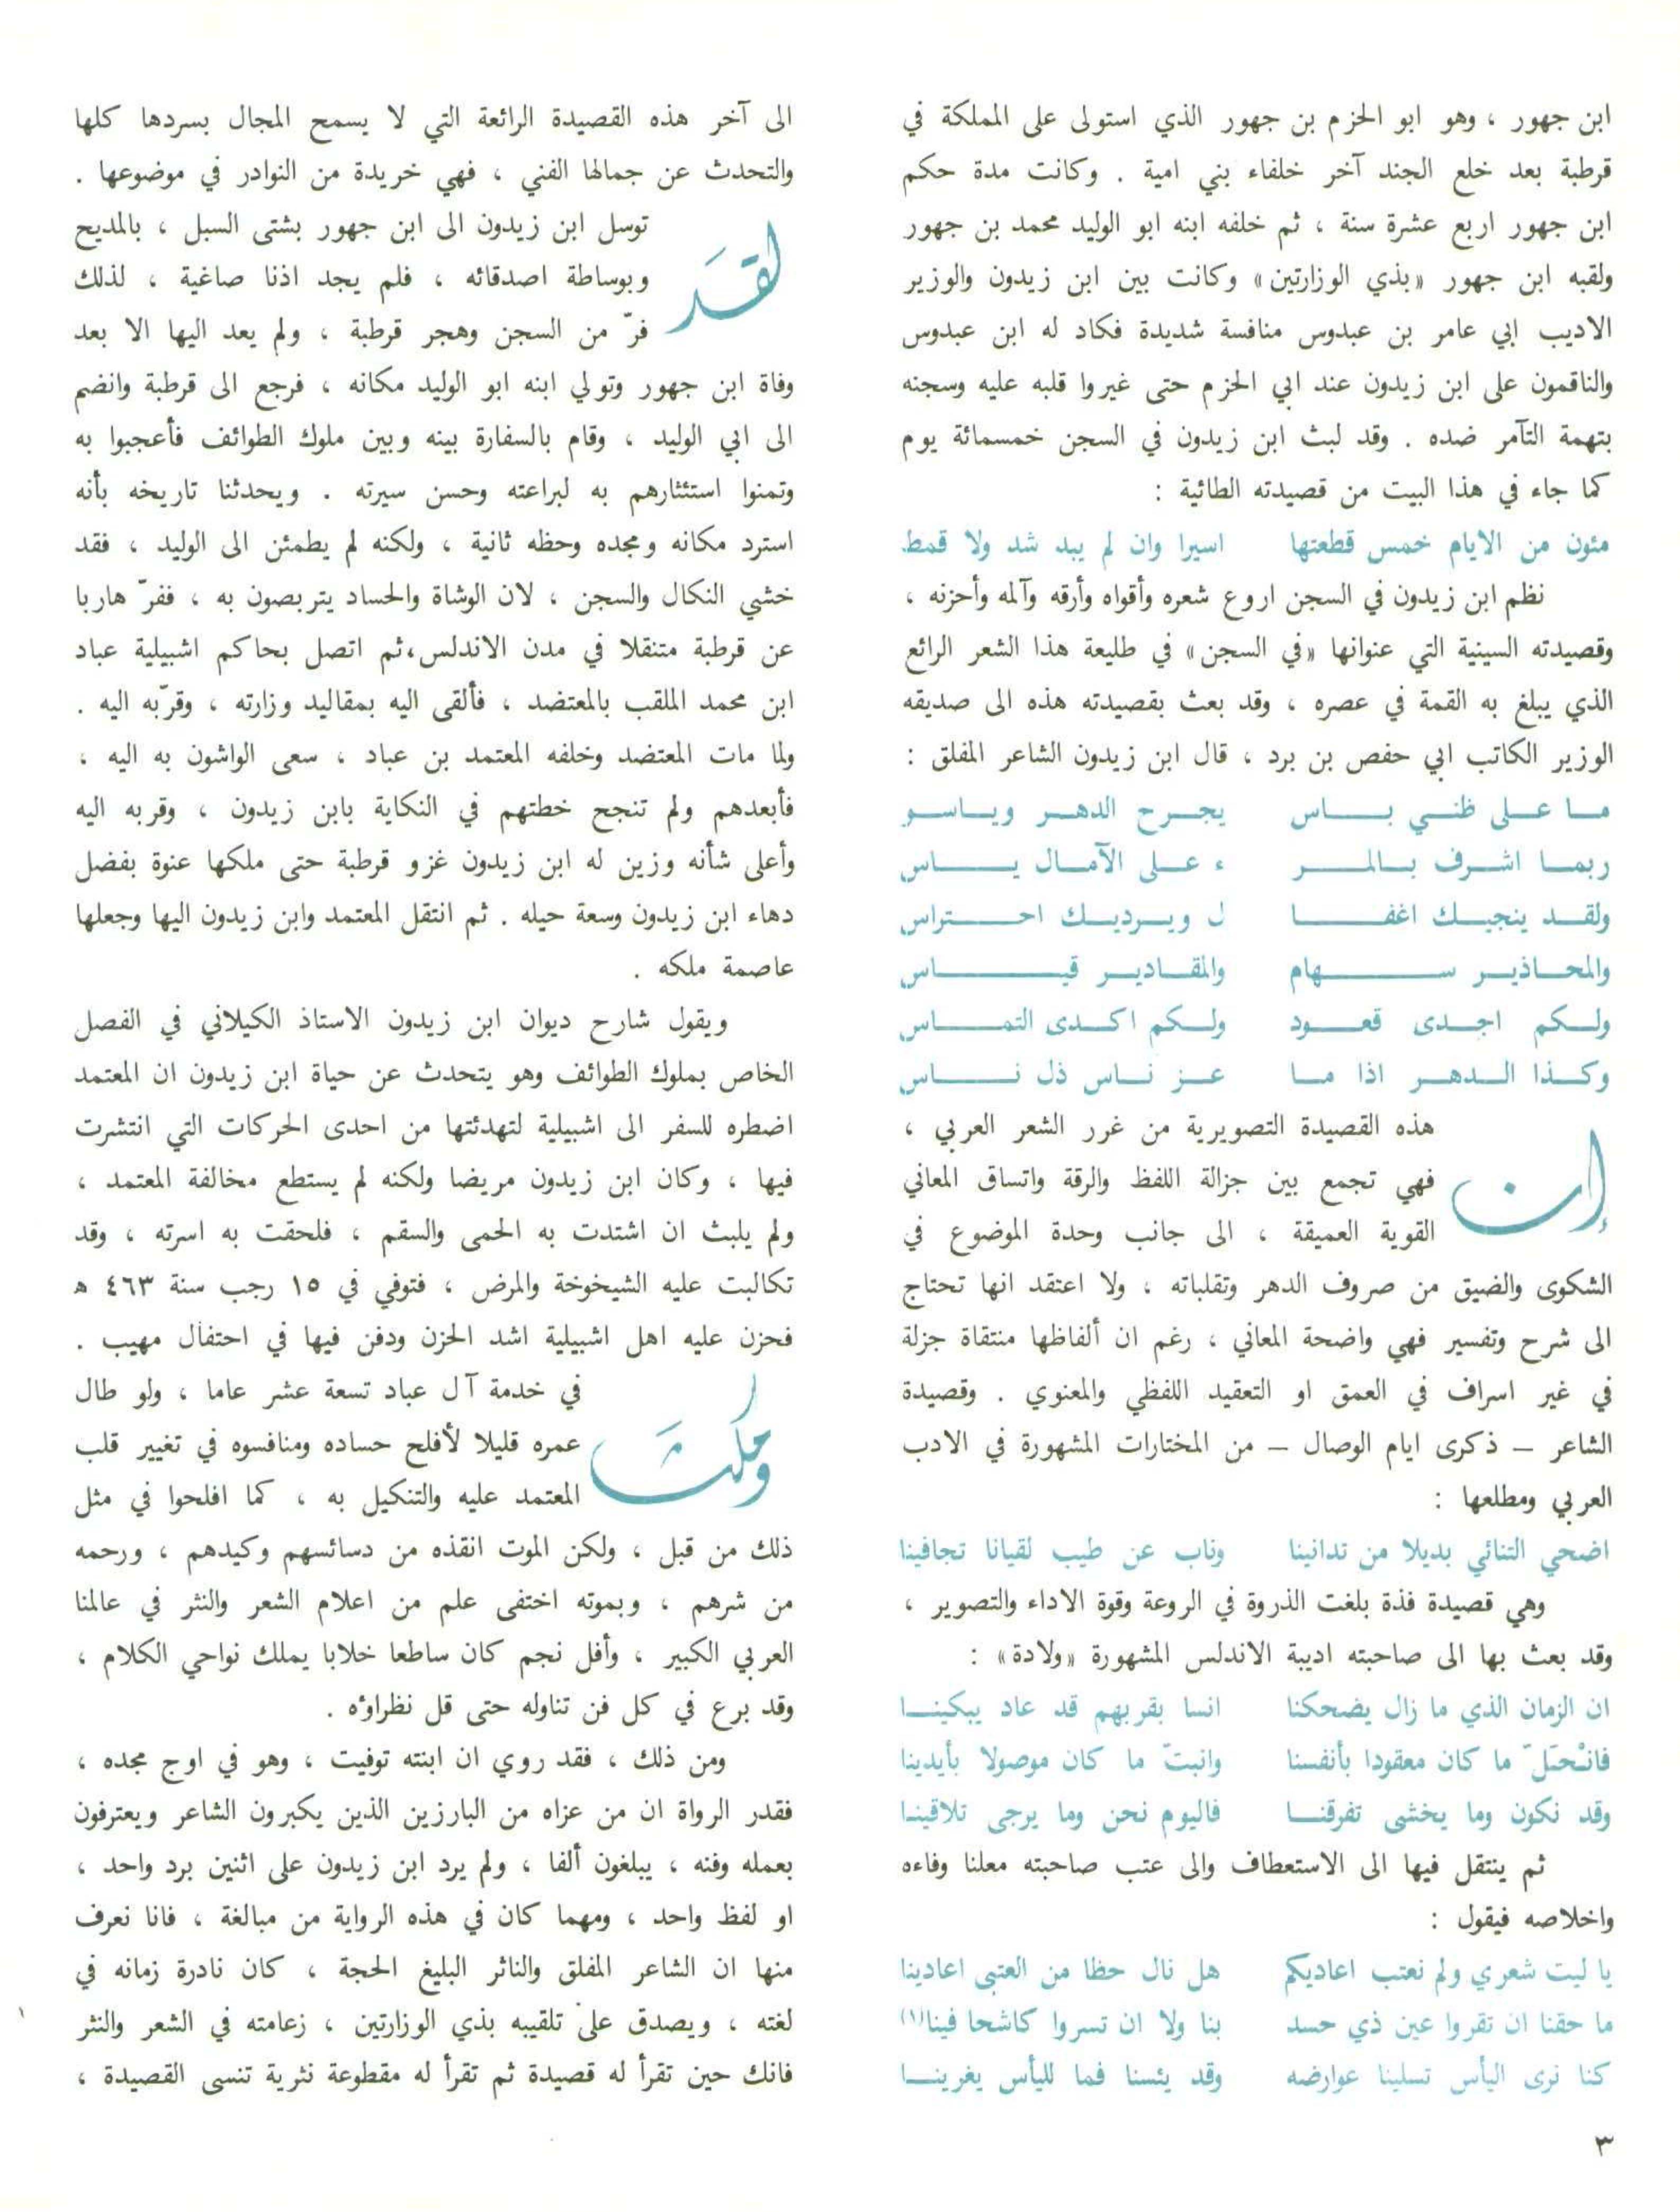 ابن جهور ، وهو ابو الحزم بن جهور الذي استولى على المملكة في
قرطبة بعد خلع الجند آخر خلفاء بني امية . وكانت مدة حكم
ابن جهور اربع عشرة سنة ، ثم خلفه ابنه ابو الوليد محمد بن جهور
ولقبه ابن جهور «بذي الوزارتين» وكانت بين ابن زيدون والوزير
الاديب ابي عامر بن عبدوس منافسة شديدة فكاد له ابن عبدوس
والناقمون على ابن زيدون عند ابي الحزم حتى غيروا قلبه عليه وسجنه
بتهمة التآمر ضده . وقد لبث ابن زيدون في السجن خمسمائة يوم
كما جاء في هذا البيت من قصيدته الطائية :
مئون من الايام خمس قطعتها اسيرا وان لم يبد شد ولا قمط
نظم ابن زيدون في السجن اروع شعره وأقواه وأرقه وآلمه وأحزنه ،
وقصيدته السينية التي عنوانها «في السجن» في طليعة هذا الشعر الرائع
الذي يبلغ به القمة في عصره ، وقد بعث بقصيدته هذه الى صديقه
الوزير الكاتب ابي حفص بن برد ، قال ابن زيدون الشاعر المفلق :
مــا عــلى ظنــي بــــاس يجــرح الدهــر ويــاســو
ربمــا اشــرف بــالمــــر ء عــلى الآمــال يــــاس
ولقــد ينجيــك اغفــــا ل ويــرديــك احــــتراس
والمحــاذيــر ســــهام والمقــاديــر قيــــاس
ولــكم اجــدى قعــــود ولــكم اكــدى التمــــاس
وكــذا الــدهــر اذا مــا عــز نــاس ذل نــــاس
إن هذه القصيدة التصويرية من غرر الشعر العربي ،
فهي تجمع بين جزالة اللفظ والرقة واتساق المعاني
القوية العميقة ، الى جانب وحدة الموضوع في
الشكوى والضيق من صروف الدهر وتقلباته ، ولا اعتقد انها تحتاج
الى شرح وتفسير فهي واضحة المعاني ، رغم ان ألفاظها منتقاة جزلة
في غير اسراف في العمق او التعقيد اللفظي والمعنوي . وقصيدة
الشاعر – ذكرى ايام الوصال – من المختارات المشهورة في الادب
العربي ومطلعها :
اضحي التنائي بديلا من تدانينا وناب عن طيب لقيانا تجافينا
وهي قصيدة فذة بلغت الذروة في الروعة وقوة الاداء والتصوير ،
وقد بعث بها الى صاحبته اديبة الاندلس المشهورة «ولادة» :
ان الزمان الذي ما زال يضحكنا انسا بقربهم قد عاد يبكينــا
فانْحَلّ ما كان معقودا بأنفسنا وانبتّ ما كان موصولا بأيدينا
وقد نكون وما يخشى تفرقنــا فاليوم نحن وما يرجى تلاقينا
ثم ينتقل فيها الى الاستعطاف والى عتب صاحبته معلنا وفاءه
واخلاصه فيقول :
يا ليت شعري ولم نعتب اعاديكم هل نال حظا من العتبى اعادينا
ما حقنا ان تقروا عين ذي حسد بنا ولا ان تسروا كاشحا فينا(١)
كنا نرى اليأس تسلينا عوارضه وقد يئسنا فما لليأس يغرينــا
٣
الى آخر هذه القصيدة الرائعة التي لا يسمح المجال بسردها كلها
والتحدث عن جمالها الفني ، فهي خريدة من النوادر في موضوعها .
لقد توسل ابن زيدون الى ابن جهور بشتى السبل ، بالمديح
وبوساطة اصدقائه ، فلم يجد اذنا صاغية ، لذلك
فرّ من السجن وهجر قرطبة ، ولم يعد اليها الا بعد
وفاة ابن جهور وتولي ابنه ابو الوليد مكانه ، فرجع الى قرطبة وانضم
الى ابي الوليد ، وقام بالسفارة بينه وبين ملوك الطوائف فأعجبوا به
وتمنوا استئثارهم به لبراعته وحسن سيرته . ويحدثنا تاريخه بأنه
استرد مكانه ومجده وحظه ثانية ، ولكنه لم يطمئن الى الوليد ، فقد
خشي النكال والسجن ، لان الوشاة والحساد يتربصون به ، ففرّ هاربا
عن قرطبة متنقلا في مدن الاندلس،ثم اتصل بحاكم اشبيلية عباد
ابن محمد الملقب بالمعتضد ، فألقى اليه بمقاليد وزارته ، وقرّبه اليه .
ولما مات المعتضد وخلفه المعتمد بن عباد ، سعى الواشون به اليه ،
فأبعدهم ولم تنجح خطتهم في النكاية بابن زيدون ، وقربه اليه
وأعلى شأنه وزين له ابن زيدون غزو قرطبة حتى ملكها عنوة بفضل
دهاء ابن زيدون وسعة حيله . ثم انتقل المعتمد وابن زيدون اليها وجعلها
عاصمة ملكه .
ويقول شارح ديوان ابن زيدون الاستاذ الكيلاني في الفصل
الخاص بملوك الطوائف وهو يتحدث عن حياة ابن زيدون ان المعتمد
اضطره للسفر الى اشبيلية لتهدئتها من احدى الحركات التي انتشرت
فيها ، وكان ابن زيدون مريضا ولكنه لم يستطع مخالفة المعتمد ،
ولم يلبث ان اشتدت به الحمى والسقم ، فلحقت به اسرته ، وقد
تكالبت عليه الشيخوخة والمرض ، فتوفي في ١٥ رجب سنة ٤٦٣ ه
فحزن عليه اهل اشبيلية اشد الحزن ودفن فيها في احتفال مهيب .
ومكث في خدمة آل عباد تسعة عشر عاما ، ولو طال
عمره قليلا لأفلح حساده ومنافسوه في تغيير قلب
المعتمد عليه والتنكيل به ، كما افلحوا في مثل
ذلك من قبل ، ولكن الموت انقذه من دسائسهم وكيدهم ، ورحمه
من شرهم ، وبموته اختفى علم من اعلام الشعر والنثر في عالمنا
العربي الكبير ، وأفل نجم كان ساطعا خلابا يملك نواحي الكلام ،
وقد برع في كل فن تناوله حتى قل نظراؤه .
ومن ذلك ، فقد روي ان ابنته توفيت ، وهو في اوج مجده ،
فقدر الرواة ان من عزاه من البارزين الذين يكبرون الشاعر ويعترفون
بعمله وفنه ، يبلغون ألفا ، ولم يرد ابن زيدون على اثنين برد واحد ،
او لفظ واحد ، ومهما كان في هذه الرواية من مبالغة ، فانا نعرف
منها ان الشاعر المفلق والناثر البليغ الحجة ، كان نادرة زمانه في
لغته ، ويصدق على تلقيبه بذي الوزارتين ، زعامته في الشعر والنثر
فانك حين تقرأ له قصيدة ثم تقرأ له مقطوعة نثرية تنسى القصيدة ،